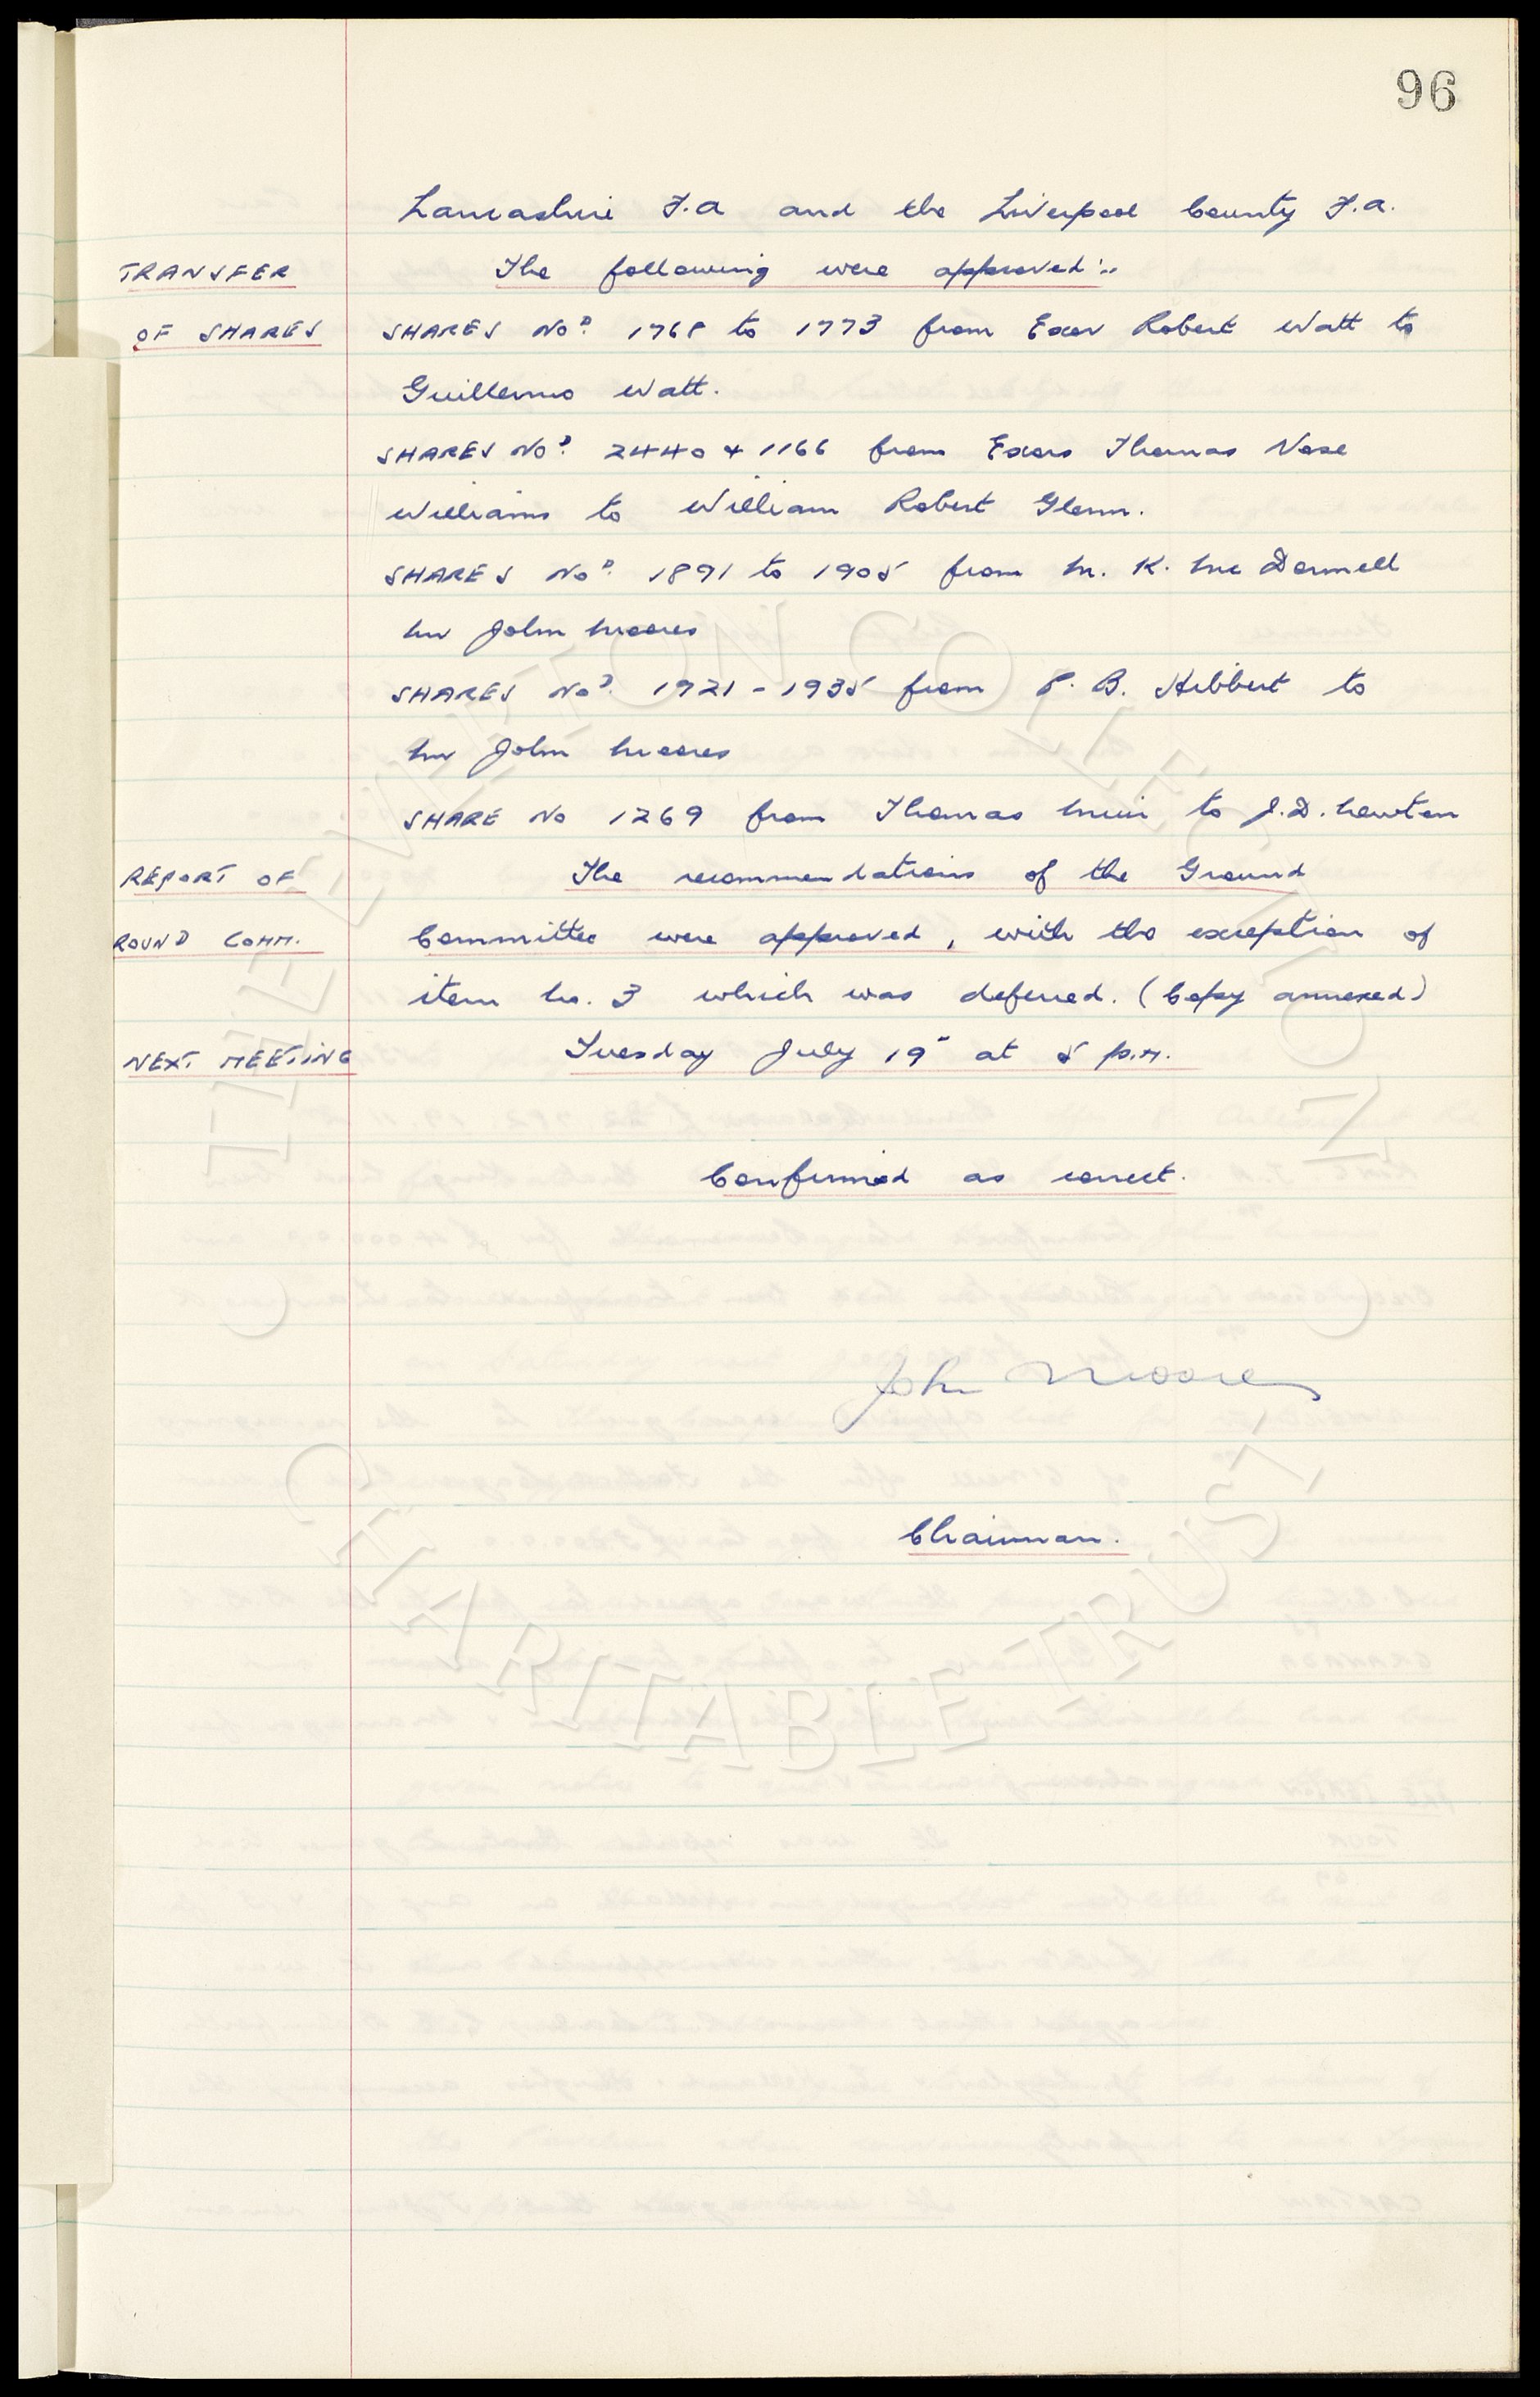 96
Lancashire F.A and the Liverpool County F.A.
TRANSFER The following were approved:-
OF SHARES SHARES Nos. 1768 to 1773 from Exor Robert Watt to
Guillermo Watt.
SHARES Nos. 2440 & 1166 from Exors Thomas Nase
Williams to William Robert Glenn.
SHARES Nos. 1891 to 1905 from M. K. Mc Donnell
Mr John Moores
SHARES Nos. 1921 - 1935 from P. B. Hibbert to
Mr John Moores
SHARE No 1269 from Thomas Muir to J.D. Newton
REPORT OF The recommendations of the Ground
ROUND COMM. Committee were approved, with the exception of
item No. 3 which was deferred. (Copy annexed)
NEXT MEETING Tuesday July 19" at 5 p.m.
Confirmed as correct.
John Moores
Chairman.
EVERTON COLLECTION
CHARITABLE TRUST